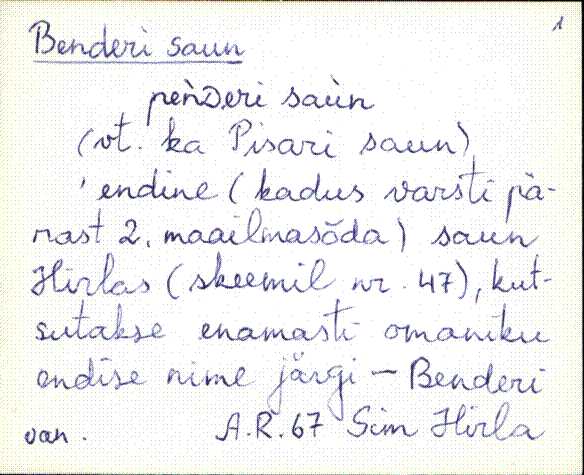 1
Benderi saun
pèǹDeri saùn
(vt. ka Pisari saun)
'endine (kadus varsti pä-
rast 2. maailmasõda) saun
Hirlas (skeemil nr. 47), kut-
sutakse enamasti omaniku
endise nime järgi – Benderi
van. A.R. 67 Sim Hirla